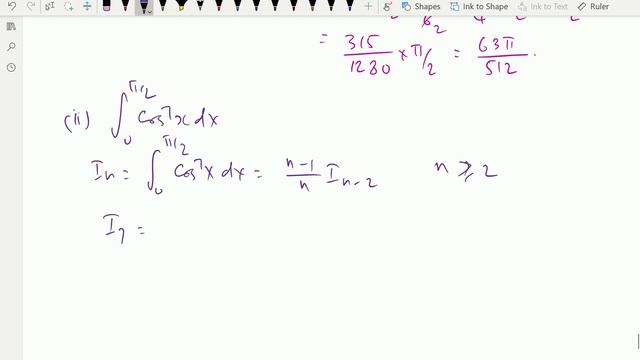 Shapes Ink to Shape Ink to Text Ruler
= 315/1280 × π/2 = 63π/512 .
(ii) ∫₀^{π/2} cos⁷x dx
Iₙ = ∫₀^{π/2} cos⁷x dx = n-1/n Iₙ₋₂ n ⩾ 2
I₇ =